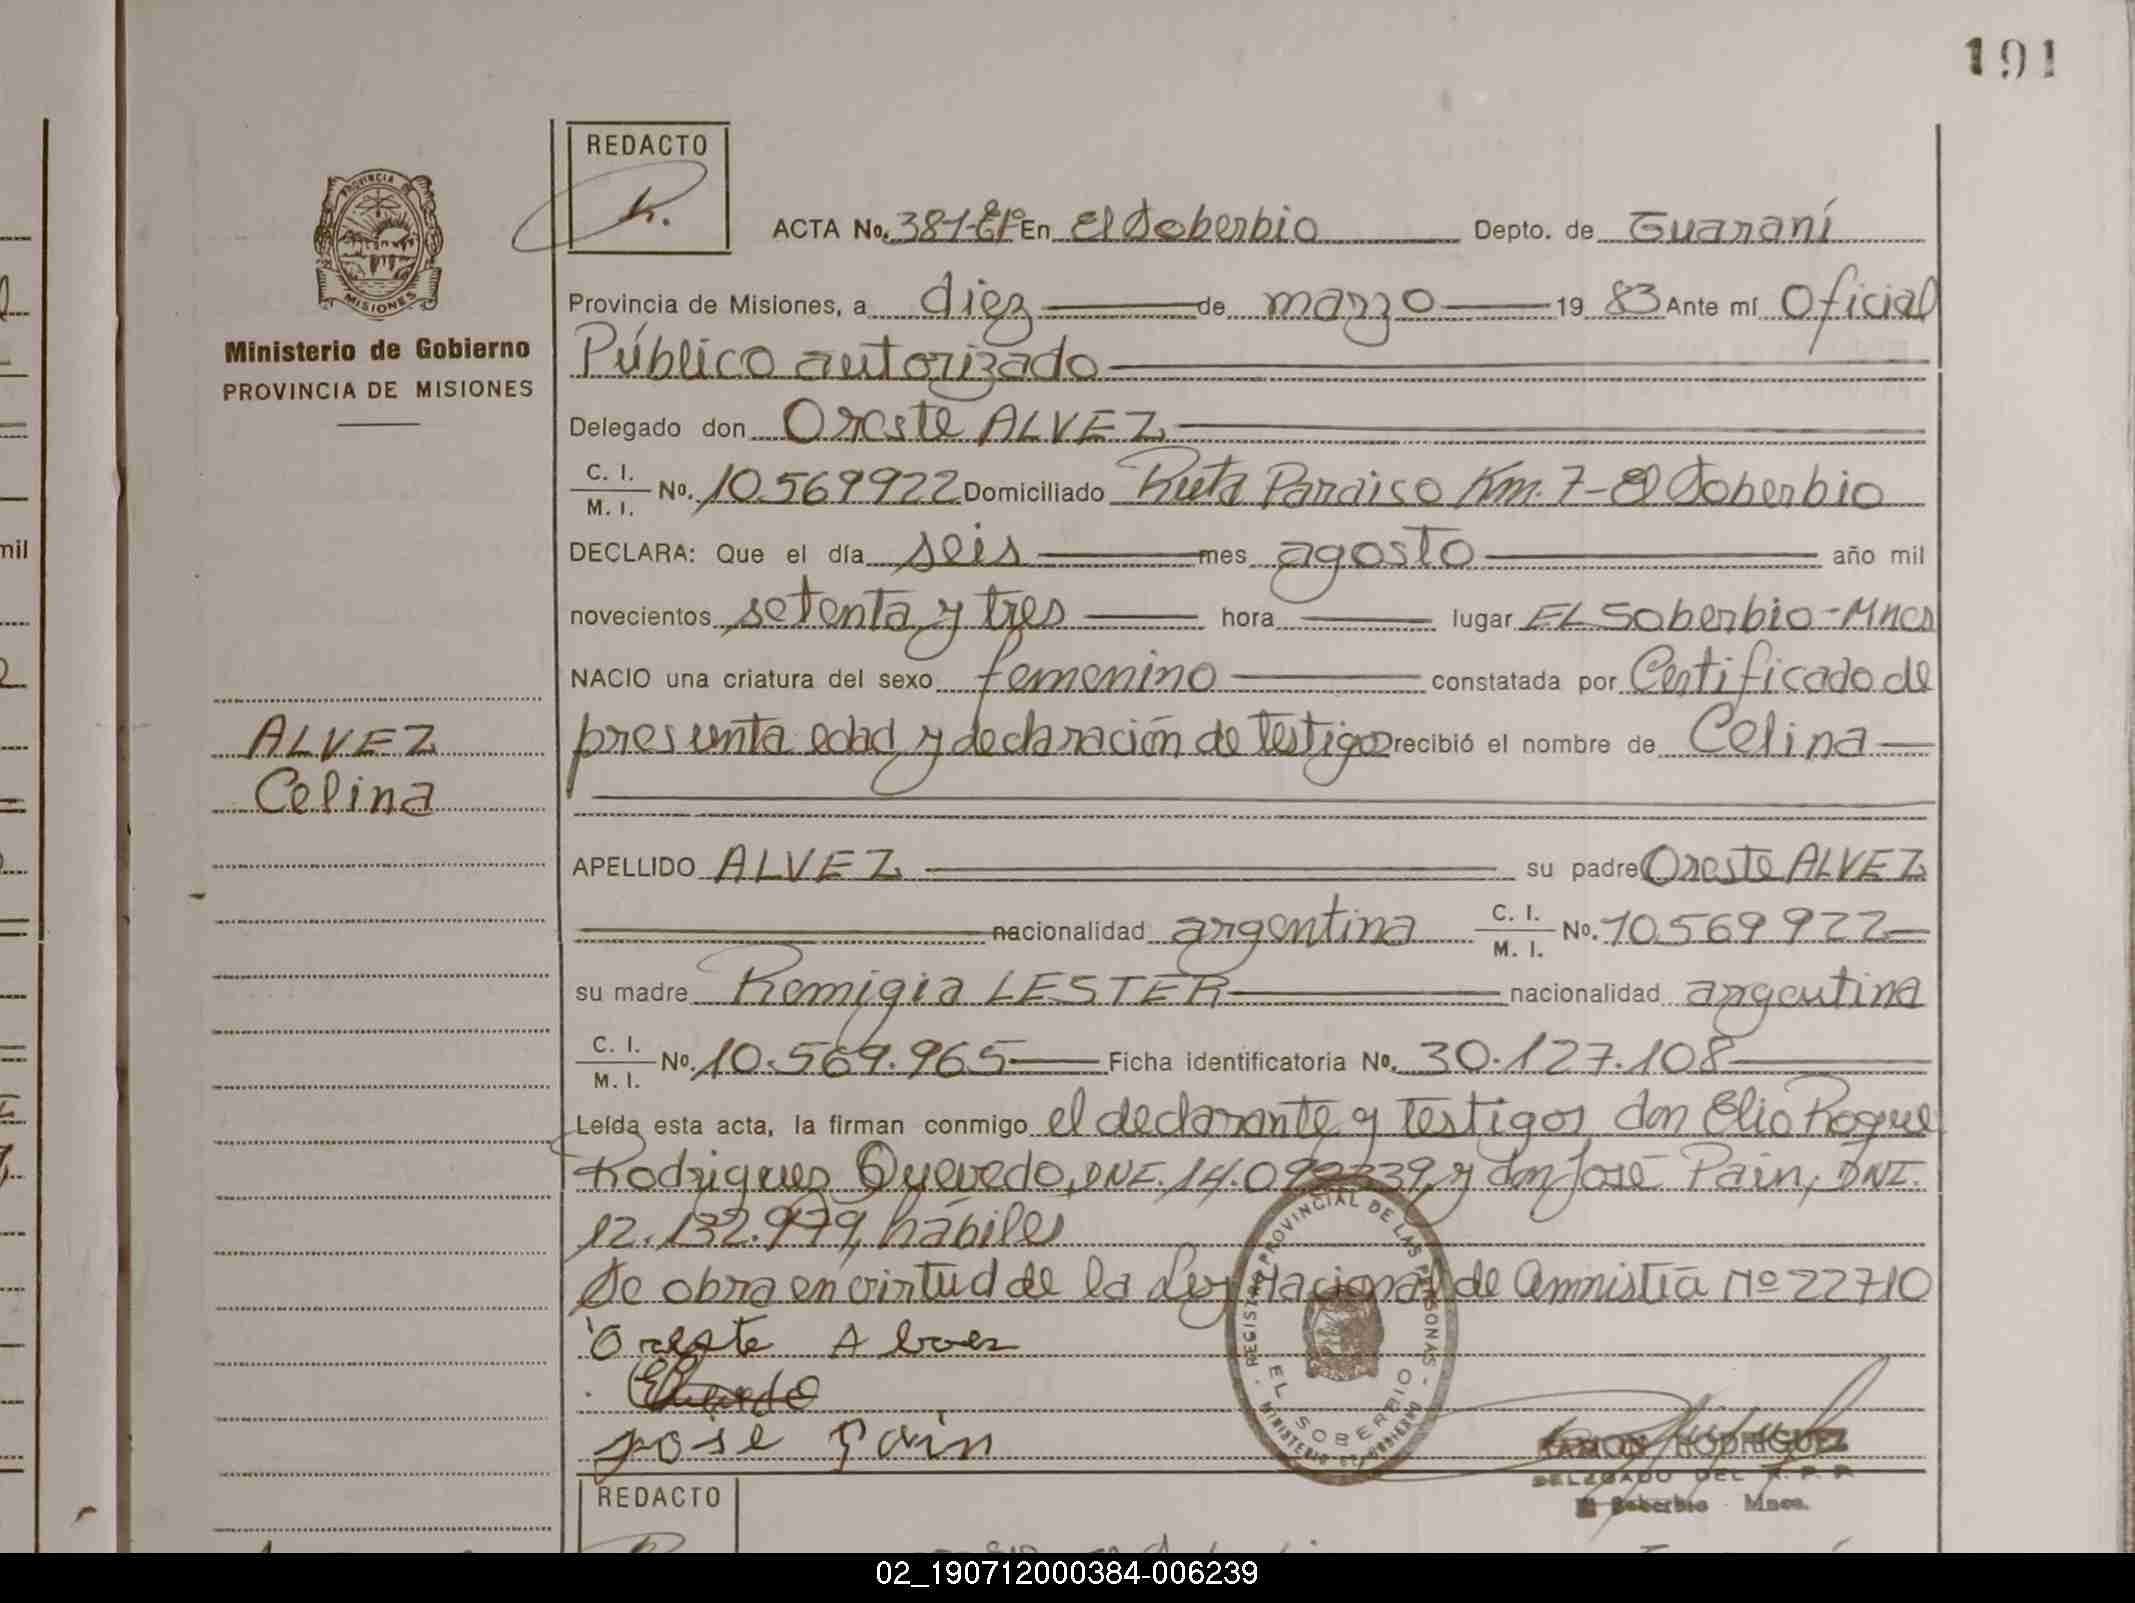 191
REDACTO
PROVINCIA
MISIONES
Ministerio de Gobierno
PROVINCIA DE MISIONES
ALVEZ
Celina
ACTA No. 381- En El Soberbio Depto. de Guaraní
Provincia de Misiones, a diez de marzo 19 83 Ante mí Oficial
Público autorizado
Delegado don Oreste ALVEZ
C. I. / M. I. No. 10.569922 Domiciliado Ruta Paraiso Km. 7-El Soberbio
DECLARA: Que el día seis mes agosto año mil
novecientos setenta y tres hora lugar EL Soberbio-Mnes
NACIO una criatura del sexo femenino constatada por Certificado de
presunta edad y declaración de testigos recibió el nombre de Celina
APELLIDO ALVEZ su padre Oreste ALVEZ
nacionalidad argentina C. I. / M. I. No. 10.569922
su madre Remigia LESTER nacionalidad argentina
C. I. / M. I. No. 10.569.965 Ficha identificatoria No. 30.127.108
Leída esta acta, la firman conmigo el declarante y testigos don Elio Roque
Rodrigues Quevedo, DNI. y don José Pain, DNI.
12.132.979, hábiles
Se obra en virtud de la Ley Nacional de Amnistía Nº 22710
Oreste Alvez
jose Pain
REGISTRO PROVINCIAL DE LAS PERSONAS
EL SOBERBIO
MINISTERIO DE GOBIERNO
RAMON RODRIGUEZ
DELEGADO DEL R. P. P.
El Soberbio - Mnes.
REDACTO
02_190712000384-006239